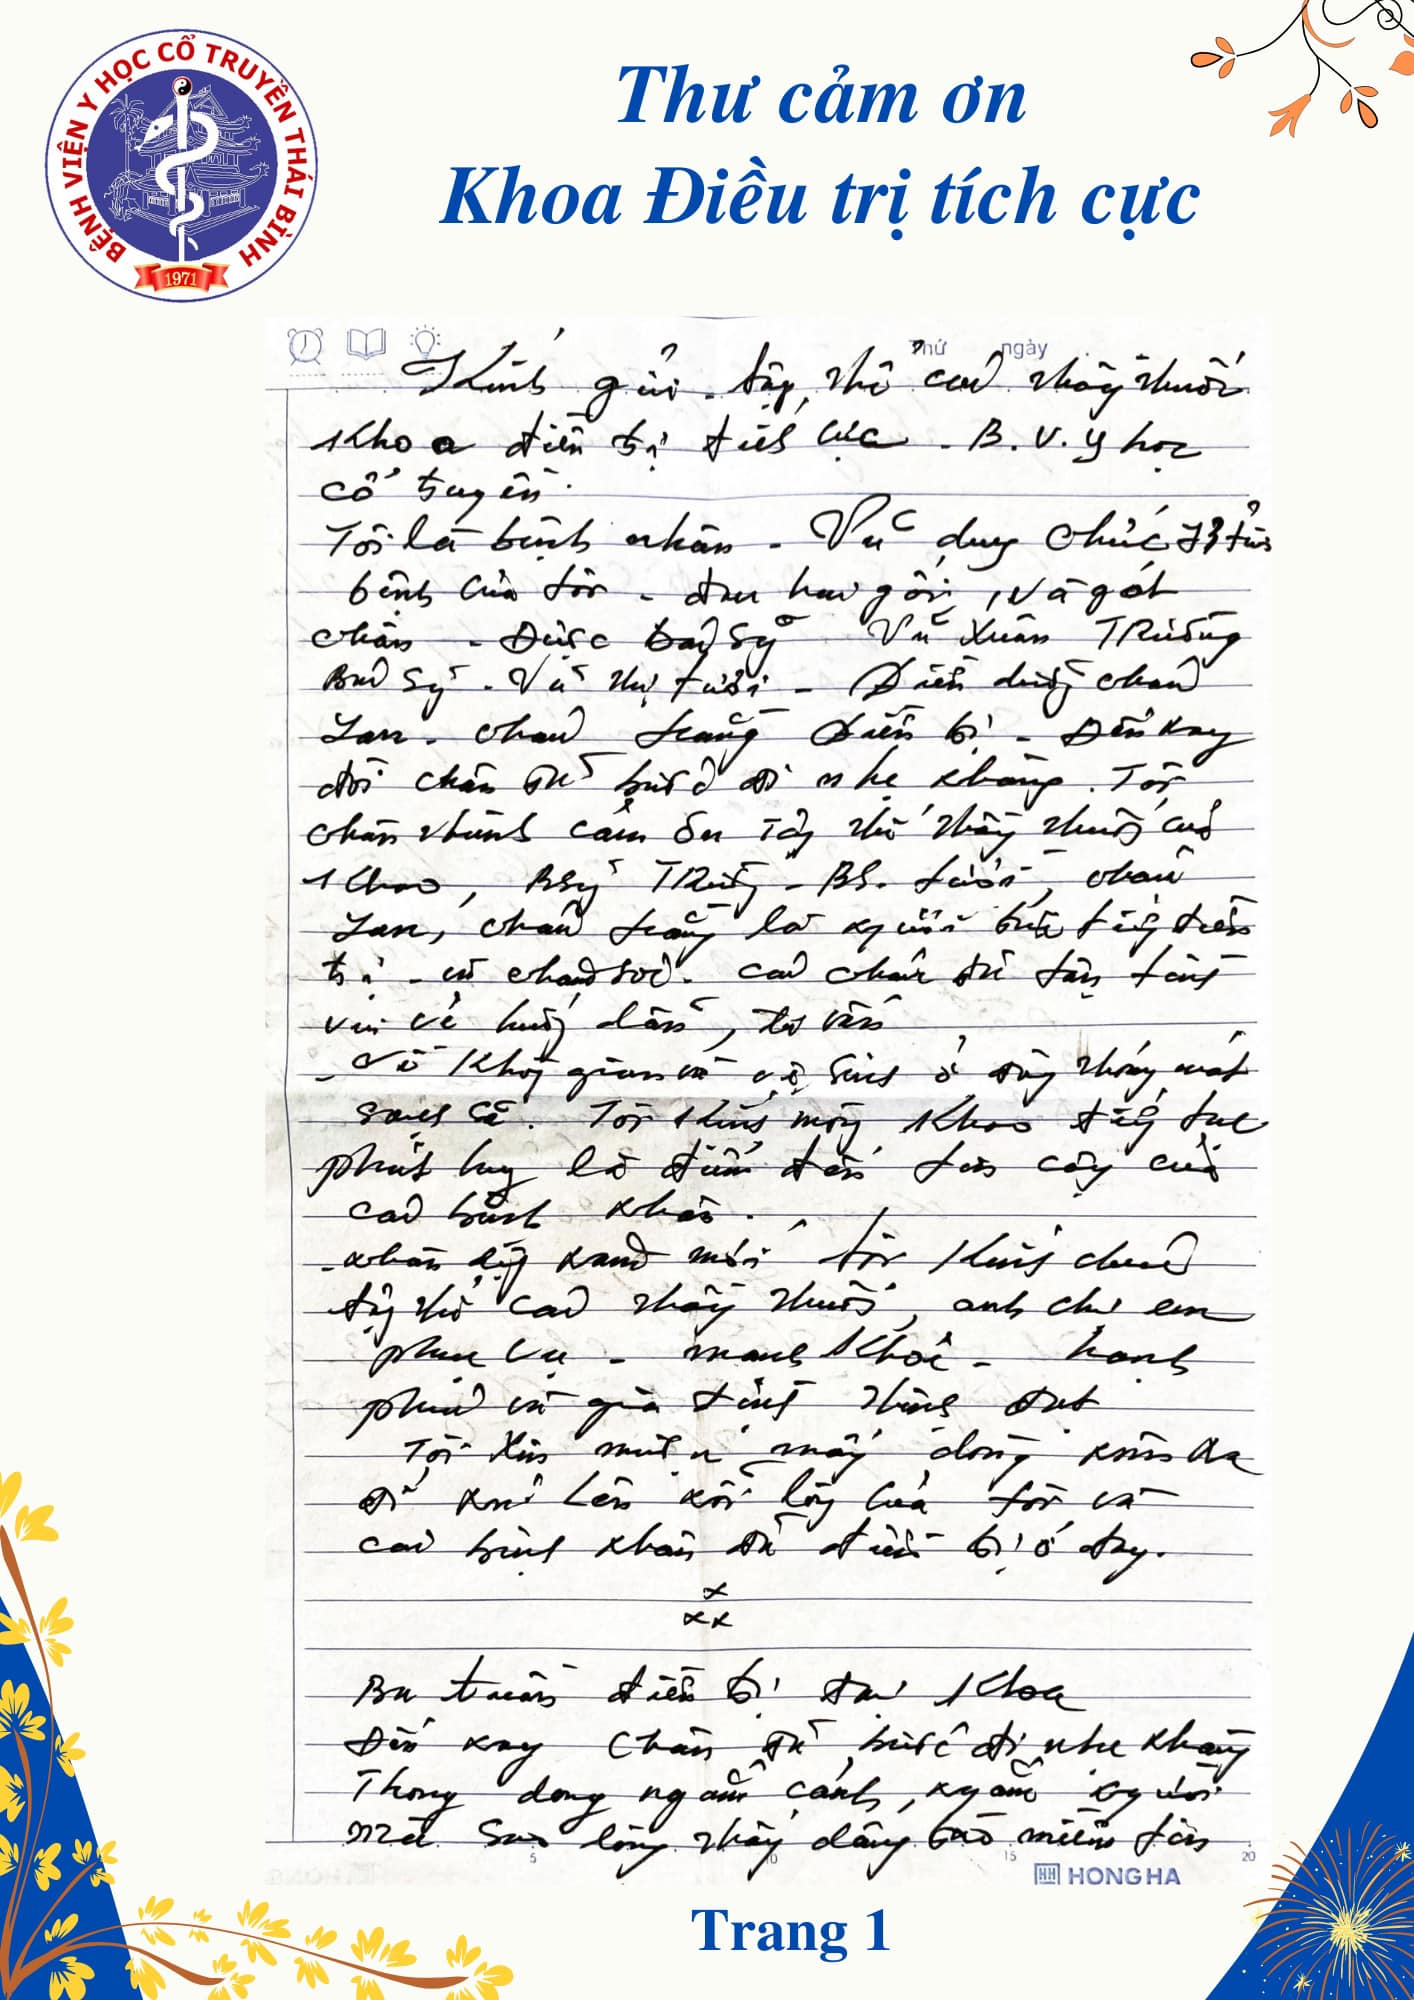 BỆNH VIỆN Y HỌC CỔ TRUYỀN THÁI BÌNH
1971
Thư cảm ơn
Khoa Điều trị tích cực
Thứ ngày
Kính gửi - tập thể các thầy thuốc
Khoa điều trị tích cực - B.V. Y học
cổ truyền.
Tôi là bệnh nhân - Vũ duy Chức
bệnh của tôi - đau hai gối, và gót
chân - Được bác sỹ Vũ Xuân Trường
Bác sỹ - Vũ thị tươi - Điều dưỡng cháu
Lan - cháu trang điều trị - Đến nay
đôi chân đã bước đi nhẹ nhàng. Tôi
chân thành cảm ơn Tập thể thầy thuốc của
Khoa, BSỹ Trường - BS. tươi, cháu
Lan, cháu trang là người trực tiếp điều
trị - và chăm sóc. các cháu đã tận tình
vui vẻ hướng dẫn, tư vấn
- Về Không gian và vệ sinh ở đây thoáng mát
sạch sẽ. Tôi Kính mong Khoa tiếp tục
phát huy là điểm đến tin cậy của
các bệnh nhân.
- nhân dịp năm mới tôi Kính chúc
tập thể các thầy thuốc, anh chị em
phục vụ - mạnh Khỏe - hạnh
phúc và gia đình thành đạt
Tôi Xin mượn mấy dòng
để nói lên nỗi lòng của tôi và
các bệnh nhân đã điều trị ở đây.
x
x x
Ba tuần điều trị tại Khoa
Đến nay Chân đã bước đi nhẹ nhàng
Thong dong ngắm cảnh, ngắm người
mà sao lòng thấy dâng trào niềm tin
5 10 15 20
HONG HA
Trang 1